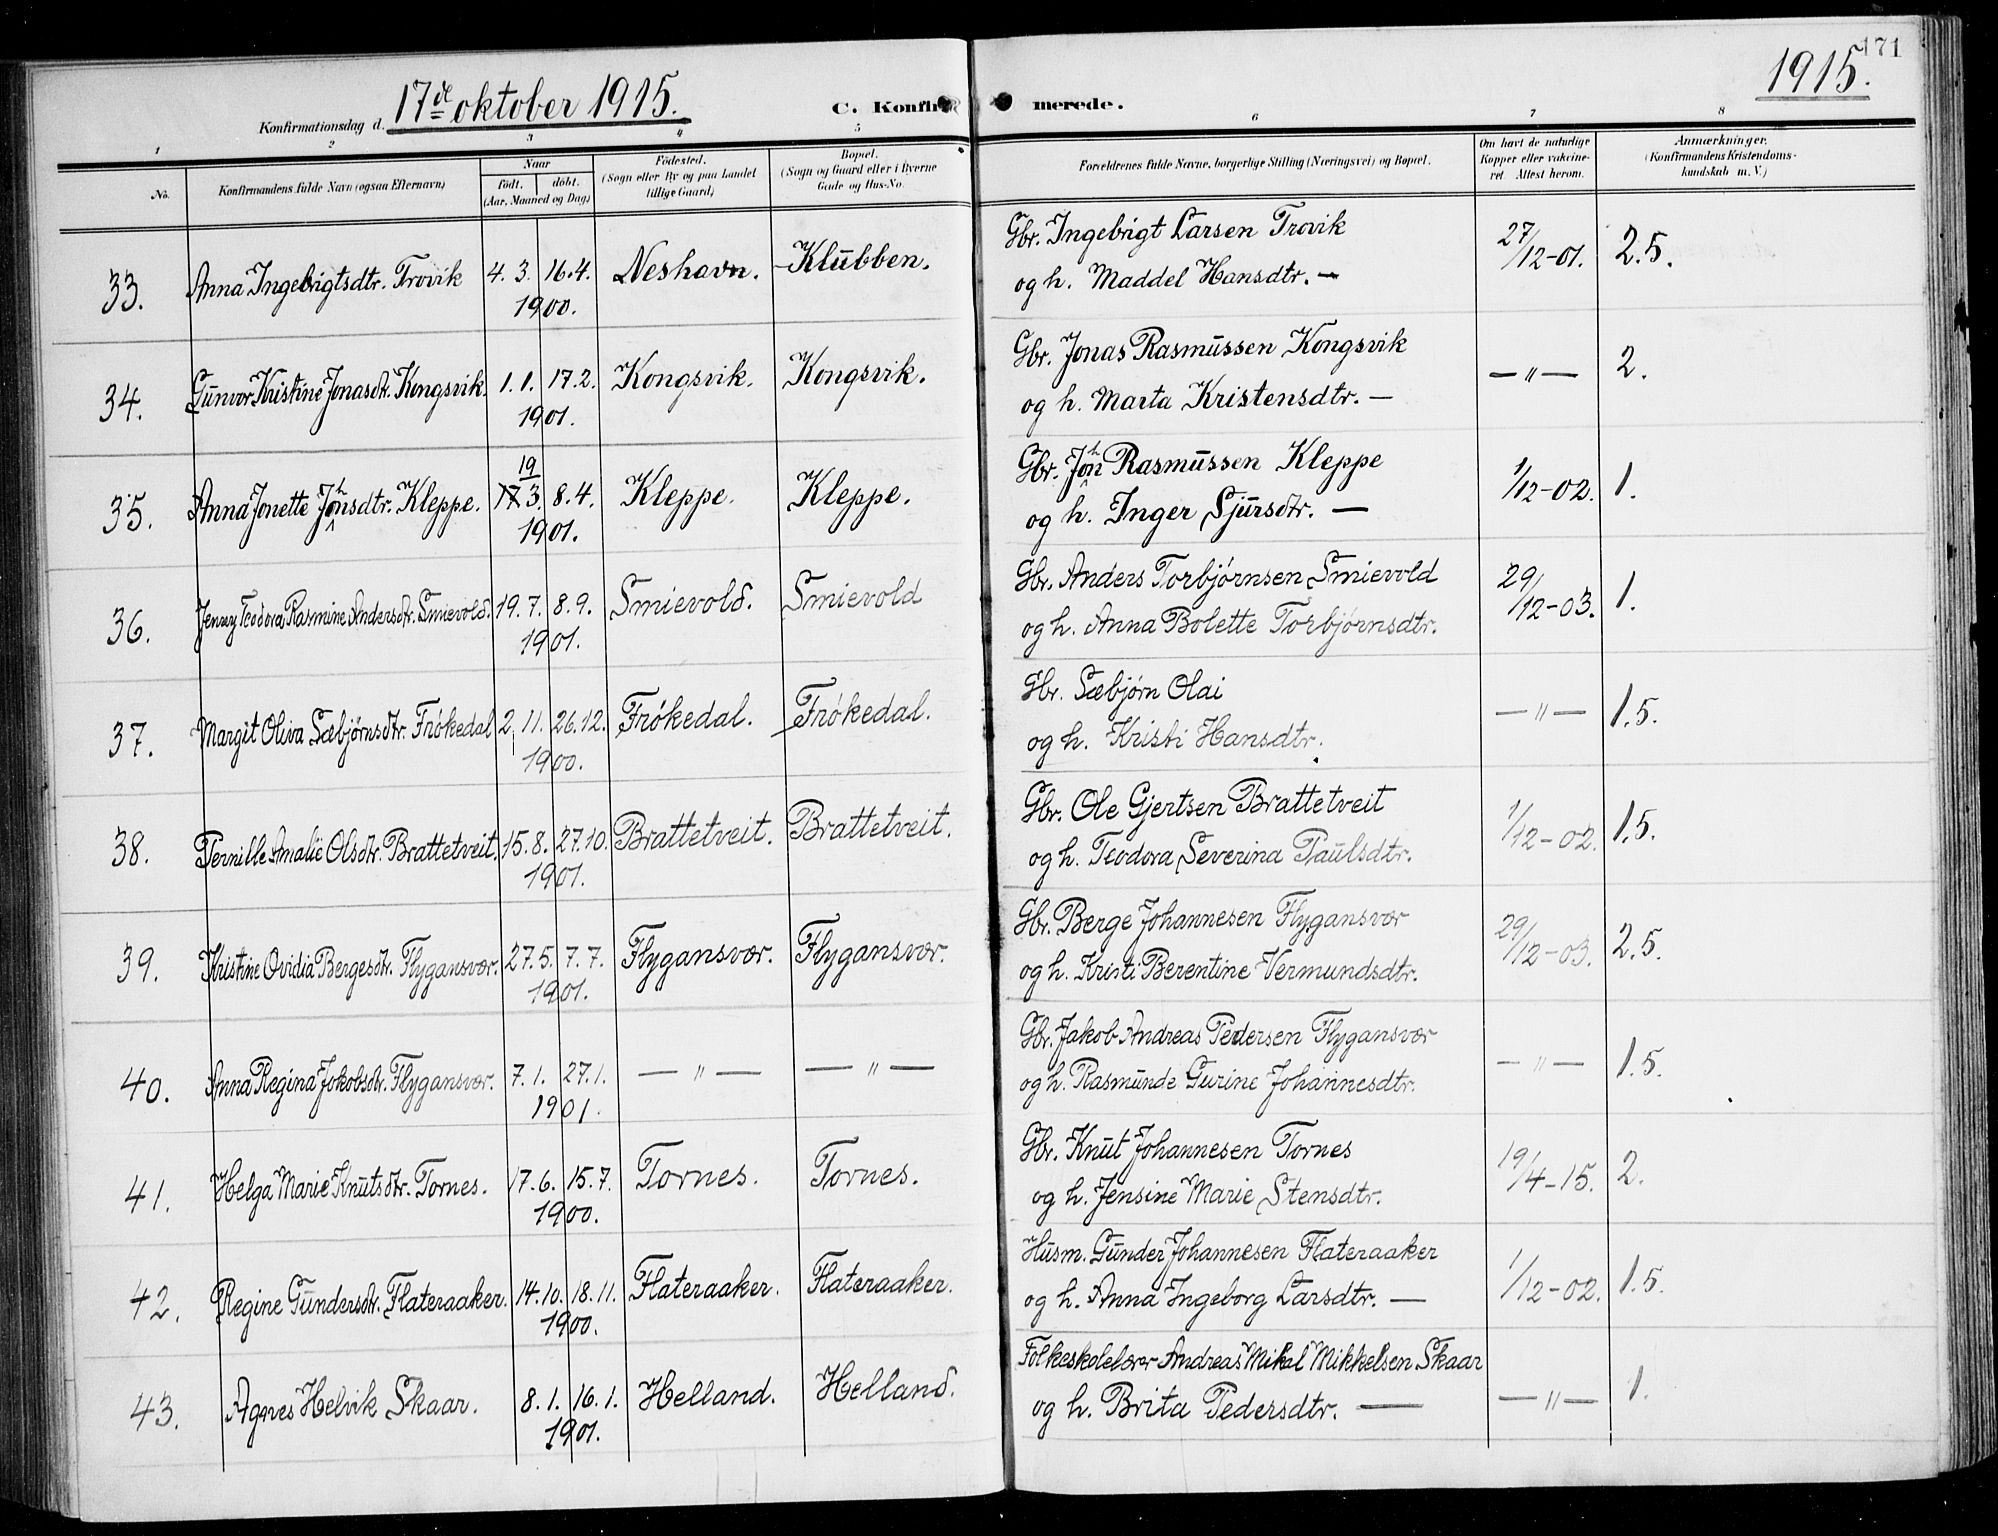 171
1915.
Konfirmationsdag d. 17de oktober 1915.
C. Konfir merede.
1 2 3 4 5 6 7 8
No.
Konfirmandens fulde Navn (ogsaa Efternavn)
Naar
født. døbt.
(Aar, Maaned og Dag)
Fødested.
(Sogn eller By og paa Landet
tillige Gaard)
Bopæl.
(Sogn og Gaard eller i Byerne
Gade og Hus-No.
Forældrenes fulde Navne, borgerlige Stilling (Næringsvei) og Bopæl.
Om havt de naturlige
Kopper eller vakcine-
ret. Attest herom.
Anmærkninger.
(Konfirmandens Kristendoms-
kundskab m. V.)
Gbr. Ingebrigt Larsen Trovik
33. Anna Ingebrigtsdtr. Trovik 4. 3. 16.4. Neshavn. Klubben. 27/12-01. 2.5.
1900. og h. Maddel Hansdtr. —
Gbr. Jonas Rasmussen Kongsvik
34. Gunvor Kristine Jonasdtr. Kongsvik. 1.1. 17.2. Kongsvik. Kongsvik. — " — 2.
1901. og h. Marta Kristensdtr. —
19
Gbr. John Rasmussen Kleppe
35. Anna Jonette Johnsdtr. Kleppe. 17 3. 8.4. Kleppe. Kleppe. 1/12-02. 1.
1901. og h. Inger Sjursdtr. —
Gbr. Anders Torbjørnsen Smievold
36. Jenny Teodora Rasmine Andersdtr. Smievold. 19.7. 8.9. Smievold. Smievold 29/12-03. 1.
1901. og h. Anna Bolette Torbjørnsdtr.
Gbr. Sæbjørn Olai
37. Margit Oliva Sæbjørnsdtr. Frøkedal 2. 11. 26.12. Frøkedal. Frøkedal. — " — 1.5.
1900. og h. Kristi Hansdtr.
Gbr. Ole Gjertsen Brattetveit
38. Pernille Amalie Olsdtr. Brattetveit. 15.8. 27.10. Brattetveit. Brattetveit. 1/12-02. 1.5.
1901. og h. Teodora Severina Paulsdtr.
Gbr. Berge Johannesen Flygansvær
39. Kristine Ovidia Bergesdtr. Flygansvær. 27.5. 7.7. Flygansvær. Flygansvær. 29/12-03. 2.5.
1901. og h. Kristi Berentine Vermundsdtr.
Gbr. Jakob Andreas Pedersen Flygansvær
40. Anna Regina Jokobsdtr. Flygansvær. 7.1. 27.1. — " — — " — — " — 1.5.
1901. og h. Rasmunde Gurine Johannesdtr.
Gbr. Knut Johannesen Tornes
41. Helga Marie Knutsdtr. Tornes. 17.6. 15.7. Tornes. Tornes. 19/4-15. 2.
1900. og h. Jensine Marie Stensdtr.
Husm. Gunder Johannesen Flateraaker
42. Regine Gundersdtr. Flateraaker. 14.10. 18.11. Flateraaker. Flateraaker. 1/12-02. 1.5.
1900. og h. Anna Ingeborg Larsdtr. —
Folkeskolelærer Andreas Mikal Mikkelsen Skaar
43. Agnes Helvik Skaar. 8.1. 16.1. Helland. Helland. — " — 1.
1901. og h. Brita Pedersdtr. —